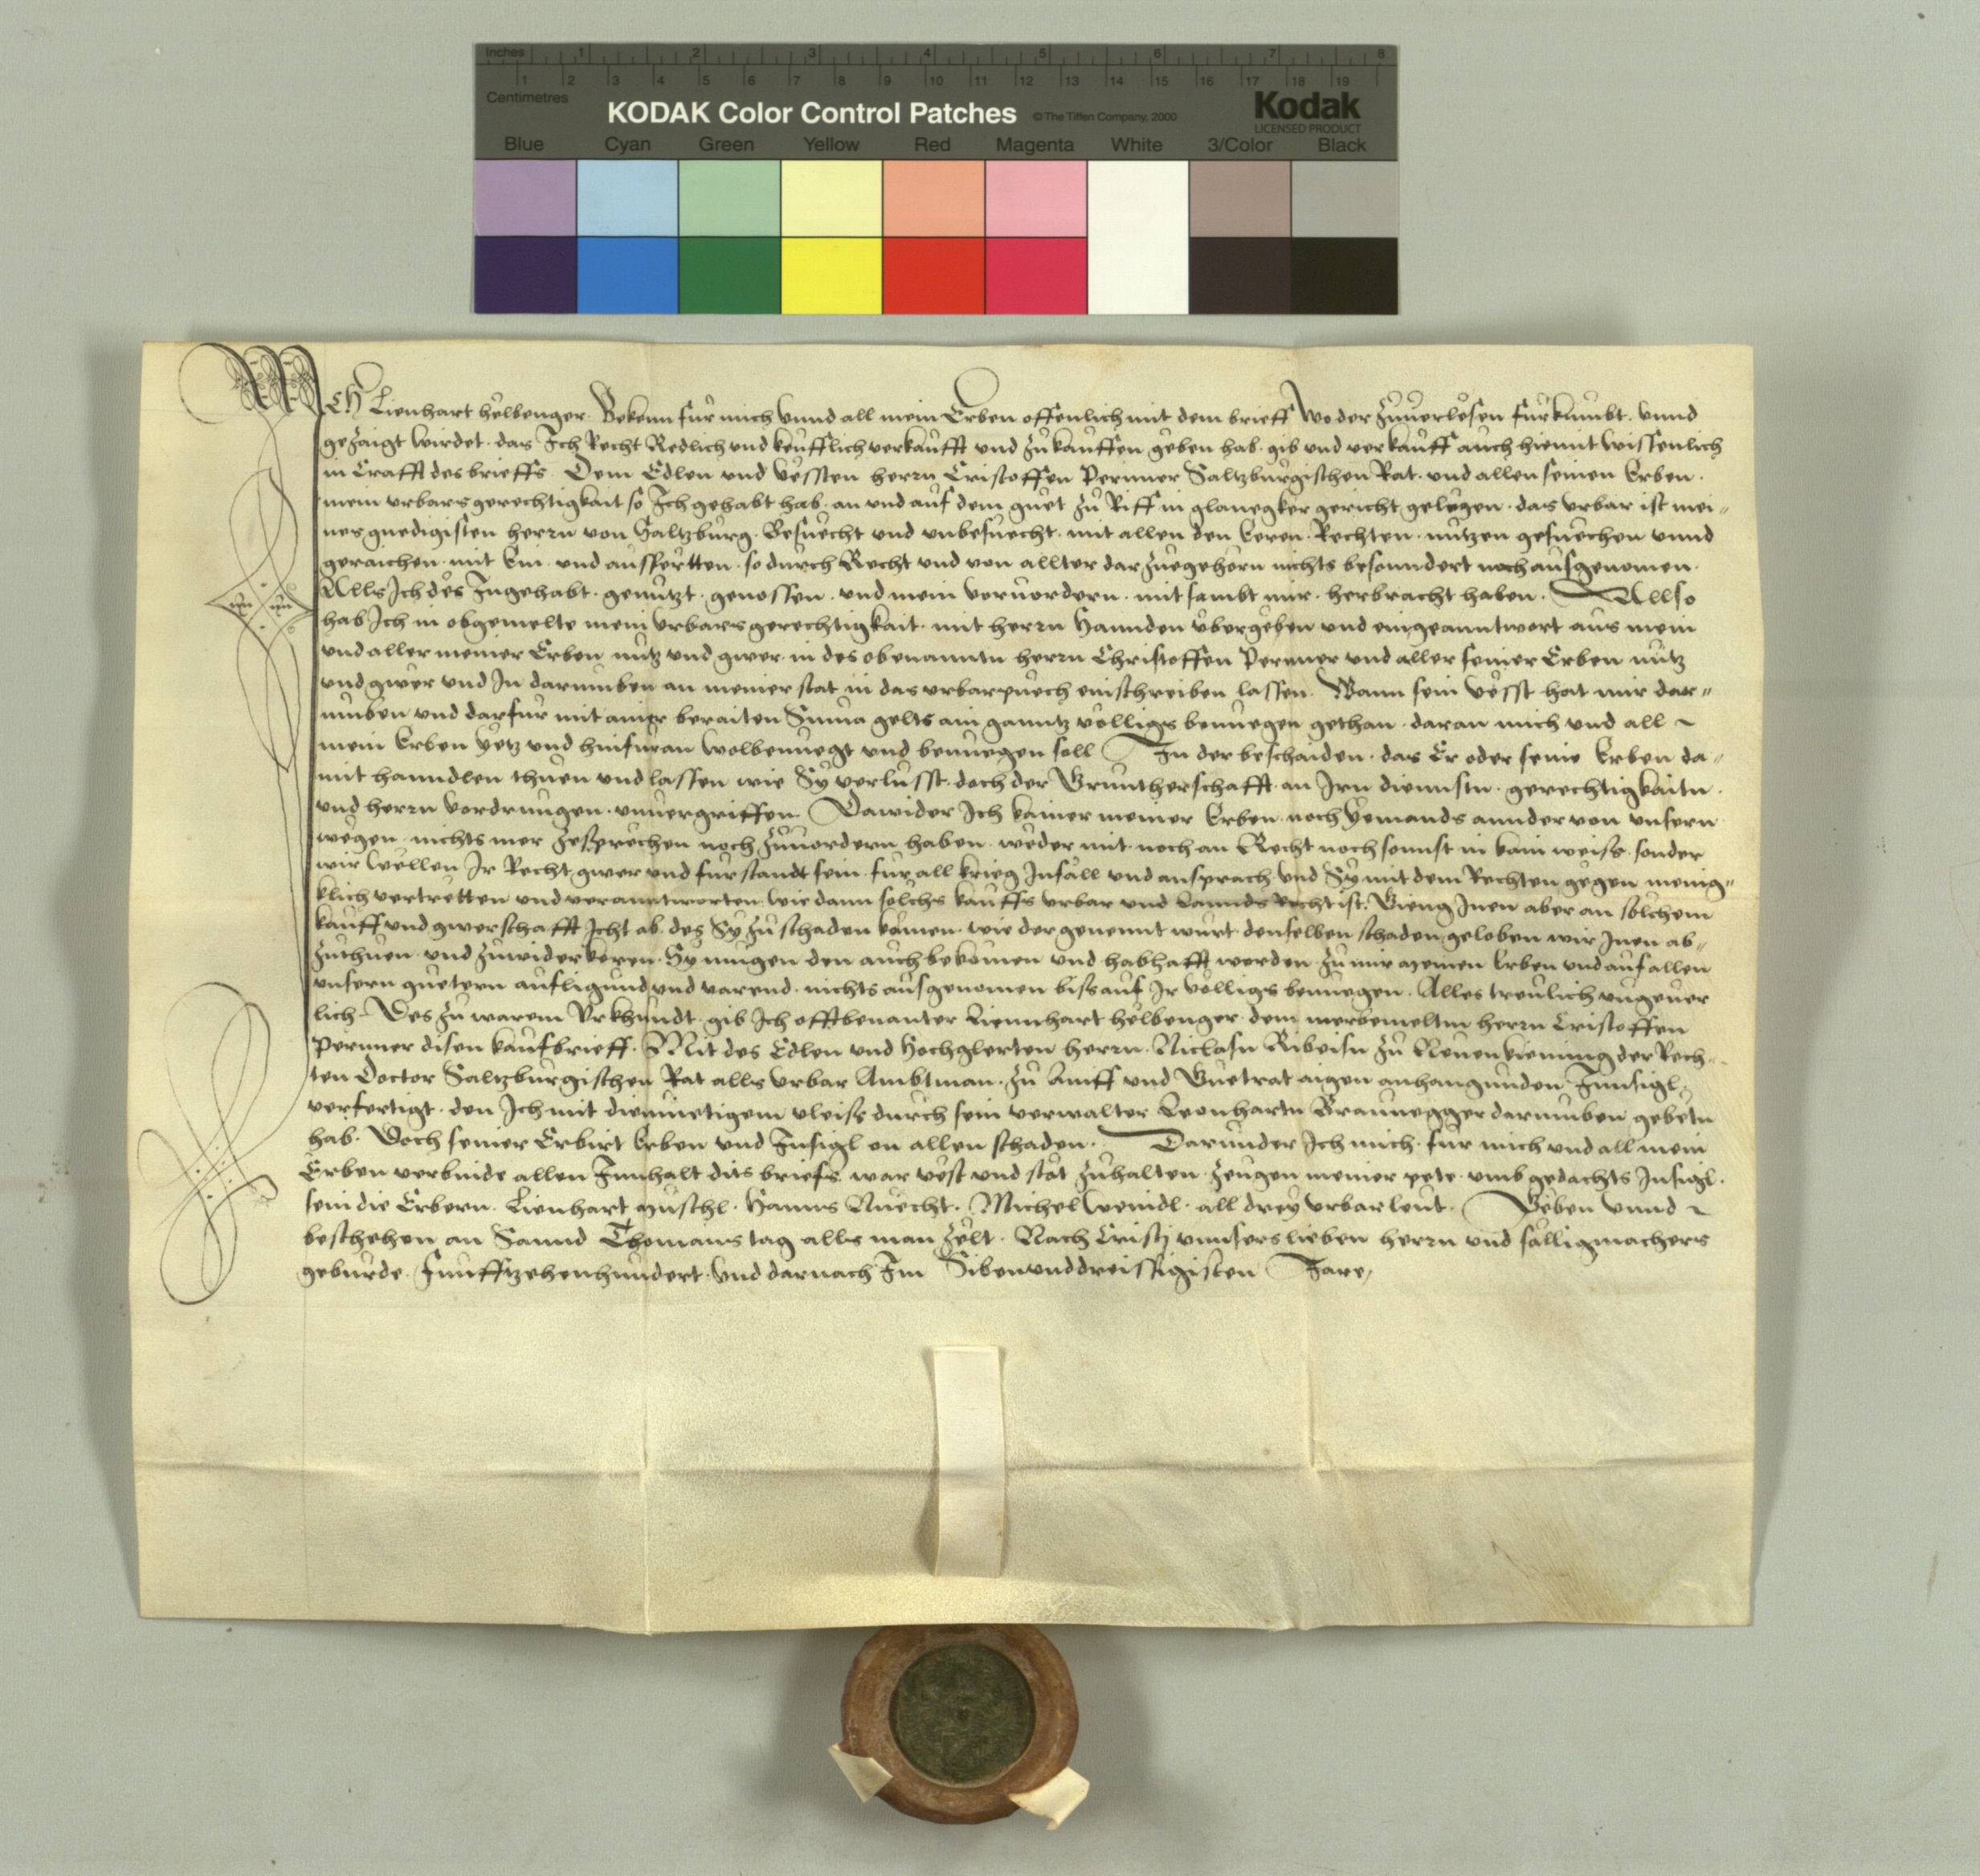 Inches 1 2 3 4 5 6 7 8
1 2 3 4 5 6 7 8 9 10 11 12 13 14 15 16 17 18 19
Centimetres
KODAK Color Control Patches © The Tiffen Company, 2000 Kodak
LICENSED PRODUCT
Blue Cyan Green Yellow Red Magenta White 3/Color Black
Ich Lienhart helbenger. Bekenn fur mich vnnd all mein Erben offenlich mit dem brieff Wo der zuuerlesen furkumbt. vnnd
gezaigt wirdet. das Ich Recht Redlich vnd keufflich verkaufft vnd zu kauffen geben hab. gib vnd verkauff auch hiemit wissenlich
in Crafft des brieffs. Dem Edlen vnd vessten herrn Cristoffen Perner Saltzburgischen Rat. vnd allen seinen Erben.
mein vrbarsgerechtigkait so Ich gehabt hab. an vnd auf dem guet zu Riff in glanegker gericht gelegen. das vrbar ist mei-
nes gnedigisten herrn von Saltzburg. Besuecht vnd vnbesuecht. mit allen den Eeren. Rechten. nutzen gesuechen vnnd
geraichen. mit Ein. vnd ausfertten. so durch Recht vnd von allter darzuegehorn nichts besonndert noch ausgenomen.
Alls Ich des Inngehabt. genutzt. genossen. vnd mein voruordern. mit sambt mir. herbracht haben. Allso
hab Ich in obgemelte mein vrbarsgerechtigkait. mit herrn Hannden vbergeben vnd eingeanntwort aus mein
vnd aller meiner Erben nutz vnd gwer. in des obenanntn herrn Christoffen Perner vnd aller seiner Erben nutz
vnd gwer vnd In darumben an meiner stat in das vrbarpuech einschreiben lassen. Wann sein vesst hat mir dar-
umben vnd darfur mit ainer beraiten Suma gelts ain ganntz volligs benuegen gethan. daran mich vnd all
mein Erben yetz vnd hinfuran wolbenuegt vnd benuegen soll In der beschaiden. das Er oder seine Erben da-
mit hanndlen thuen vnd lassen wie Sy verlusst. doch der Gruntherschafft an Irn diennstn. gerechtigkaitn.
vnd herrn vordrungen. vnuergriffen. Dawider Ich kainer meiner Erben. noch yemands annder von vnsern
wegen. nichts mer zesprechen noch zuuordern haben. weder mit noch an Recht noch sonnst in kain weiss. sonder
wir wellen Ir Recht gwer vnd furstandt sein. fur all krieg Infall vnd ansprach. vnd Sy mit dem Rechten gegen menig-
klich vertretten vnd verantworten. wie dann solchs kauffs vrbar vnd Lannds Recht ist. Gieng Inen aber an solchem
kauff vnd gwerschafft Icht ab. des Sy zu schaden komen. wie der genennt wurt. denselben schaden geloben wir Inen ab-
zuthuen. vnd zuwiderkeren. Sy mugen den auch bekomen vnd habhafft werden zu mir meinen Erben vnd auf allen
vnsern guetern aufligund vnd varend. nichts ausgenomen biss auf Ir volligs benuegen. Alles treulich vngeuer
lich. Des zu warem Vrkhundt. gib Ich offtbenanter Liennhart helbenger. dem mergemeltn herrn Cristoffen
Perner disen kaufbrieff. Mit des Edlen vnd Hochglerten herrn. Niclasn Ribeisn zu Neuenkieming der Rech-
ten Doctor Saltzburgischen Rat alls vrbar Ambtman. zu Aniff vnd Guetrat aigen anhangunden Innsigl
verfertigt. den Ich mit diemuetigem vleiss durch sein verwalter Leonhartn Braunegger darumben gebetn
hab. Doch seiner Erbirt Erben vnd Insigl on allen schaden. Darunder Ich mich. fur mich vnd all mein
Erben verbinde allen Innhalt dits briefs war vest vnd stat zuhalten. zeugen meiner pete. vmb gedachts Insigl.
sein die Erbern. Lienhart Muschl. Hanns Nuecht. Michel Weindl. all drey vrbarleut. Geben vnnd
beschehen an Sannd Thomans tag alls man zelt. Nach Cristj vnnsers lieben herrn vnd salligmachers
geburde. Funffzehenhundert. vnd darnach Im Sibenunddreissigisten Jare,